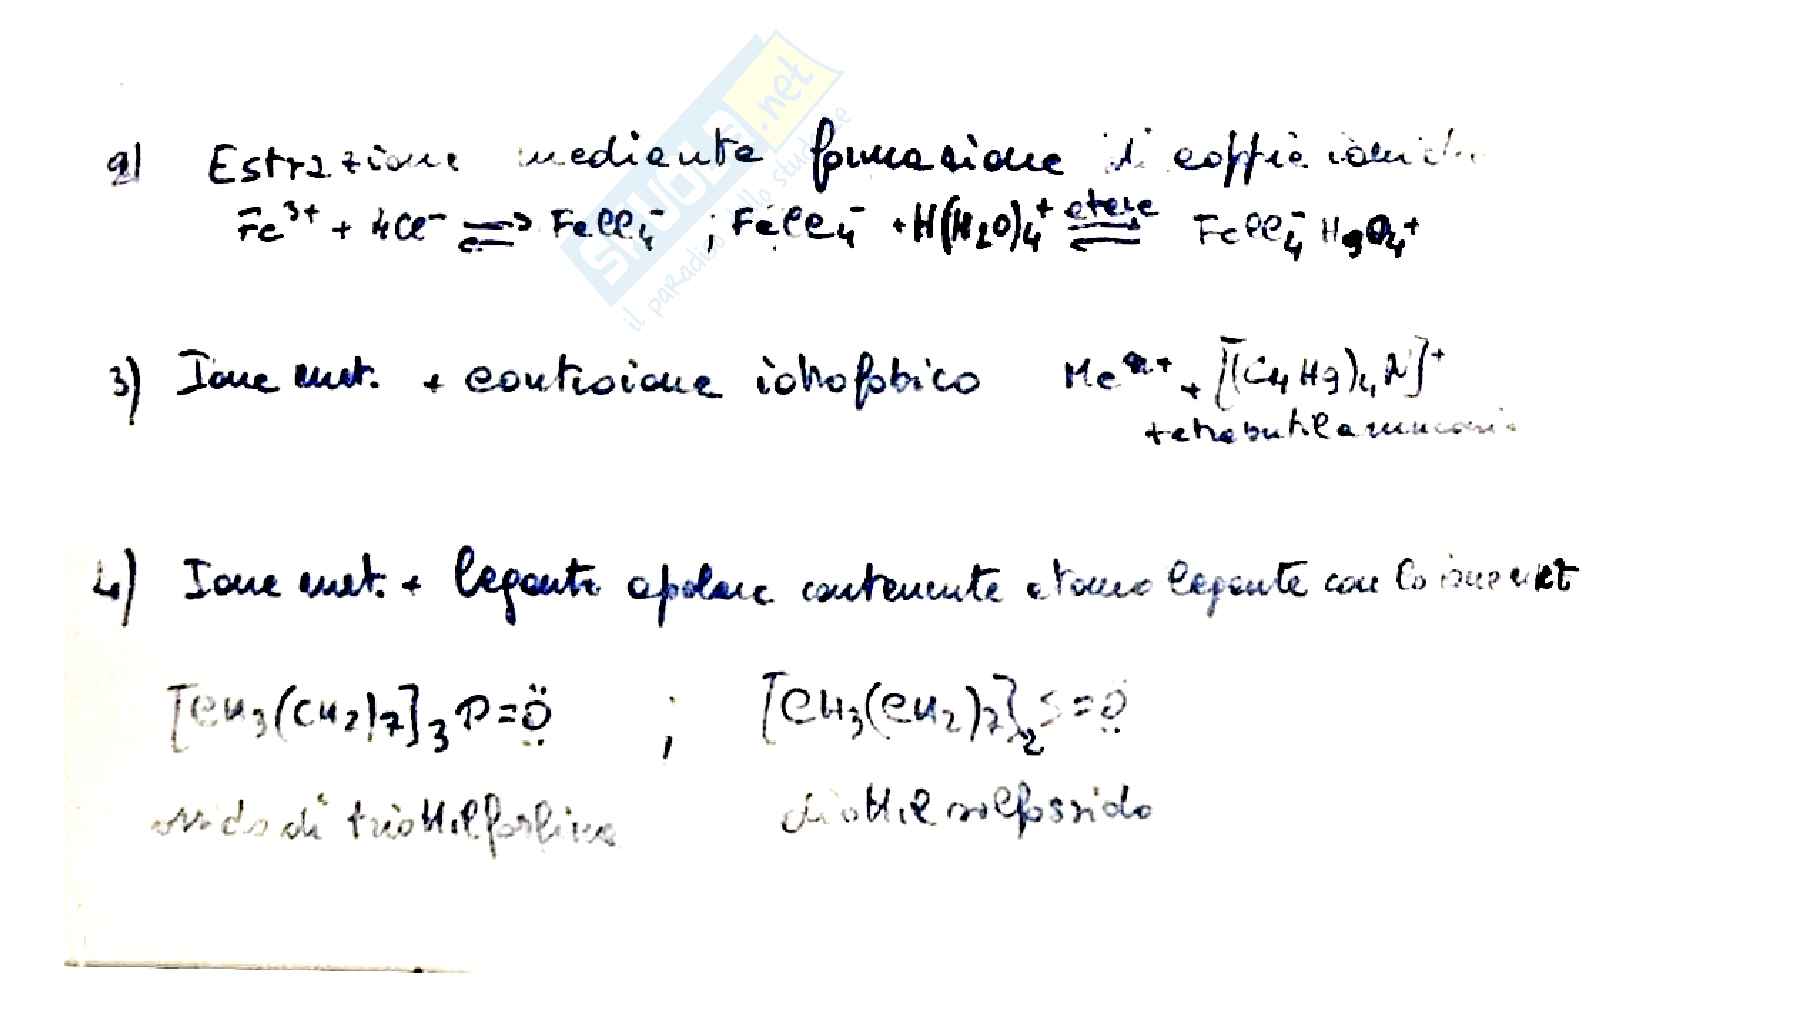 2) Estrazione mediante formazione di coppie ioniche
Fe³⁺ + 4Cl⁻ ⇌ FeCl₄⁻ ; FeCl₄⁻ + H(H₂O)₄⁺ ⇌ etere FeCl₄⁻ H₉O₄⁺
3) Ione met. + controione idrofobico Meⁿ⁺ + [(C₄H₉)₄N]⁺
tetrabutilammonio
4) Ione met. + legante apolare contenente atomo legante con lo ione met
[CH₃(CH₂)₇]₃P=Ö ; [CH₃(CH₂)₇]₂S=O
ossido di triottilfosfina diottilsolfossido
SKUOLA.net
il paradiso dello studente